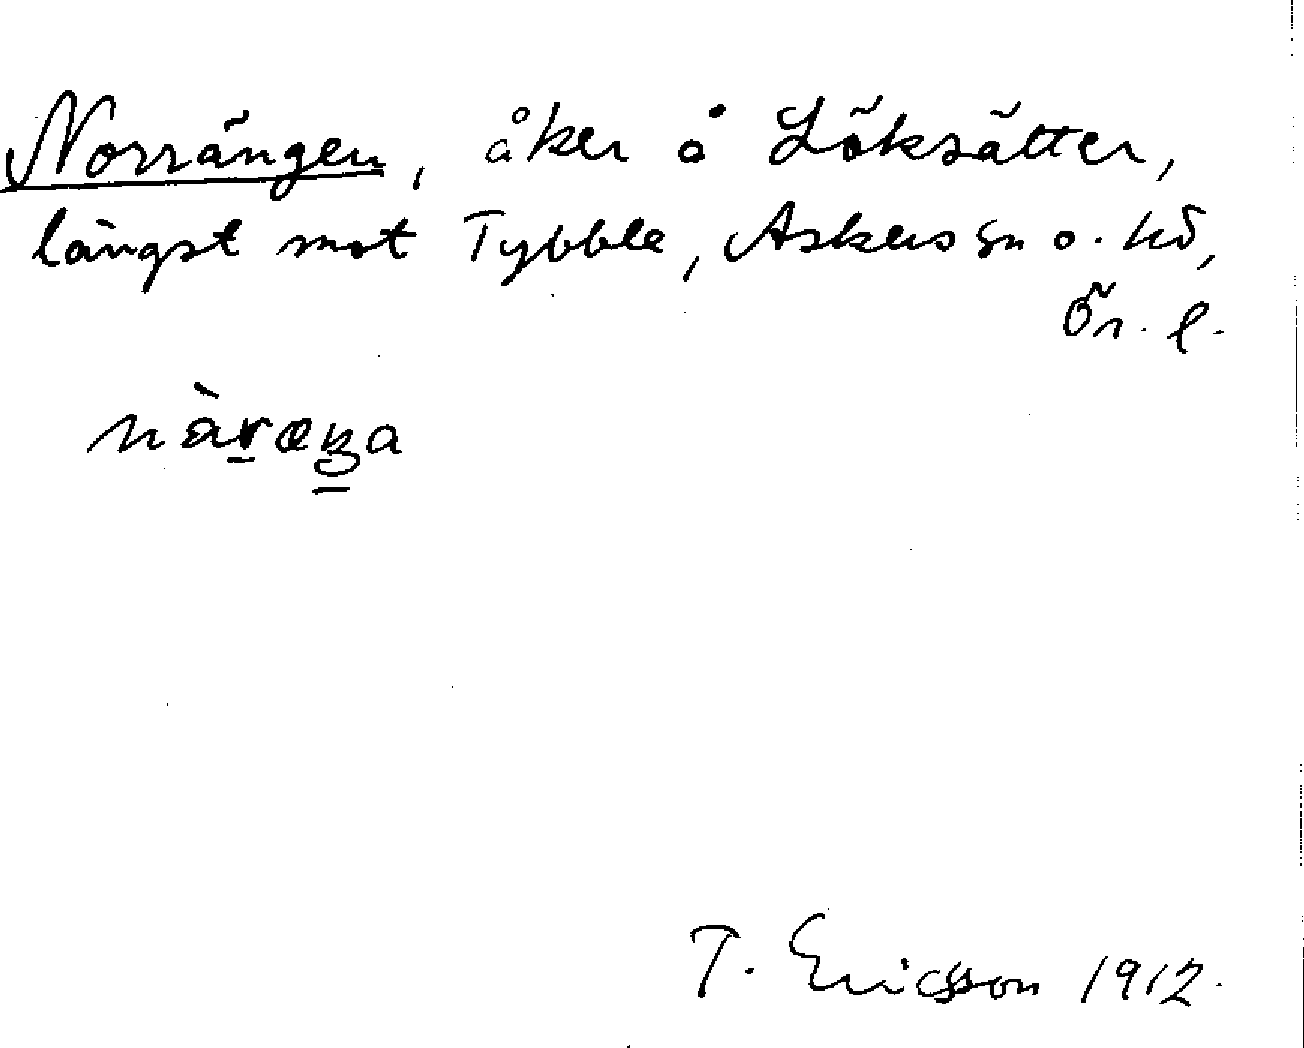 Norrängen, åker å Löksätter,
längst mot Tybble, Askers sn o. hd,
Ör. l.
T. Ericsson 1912.